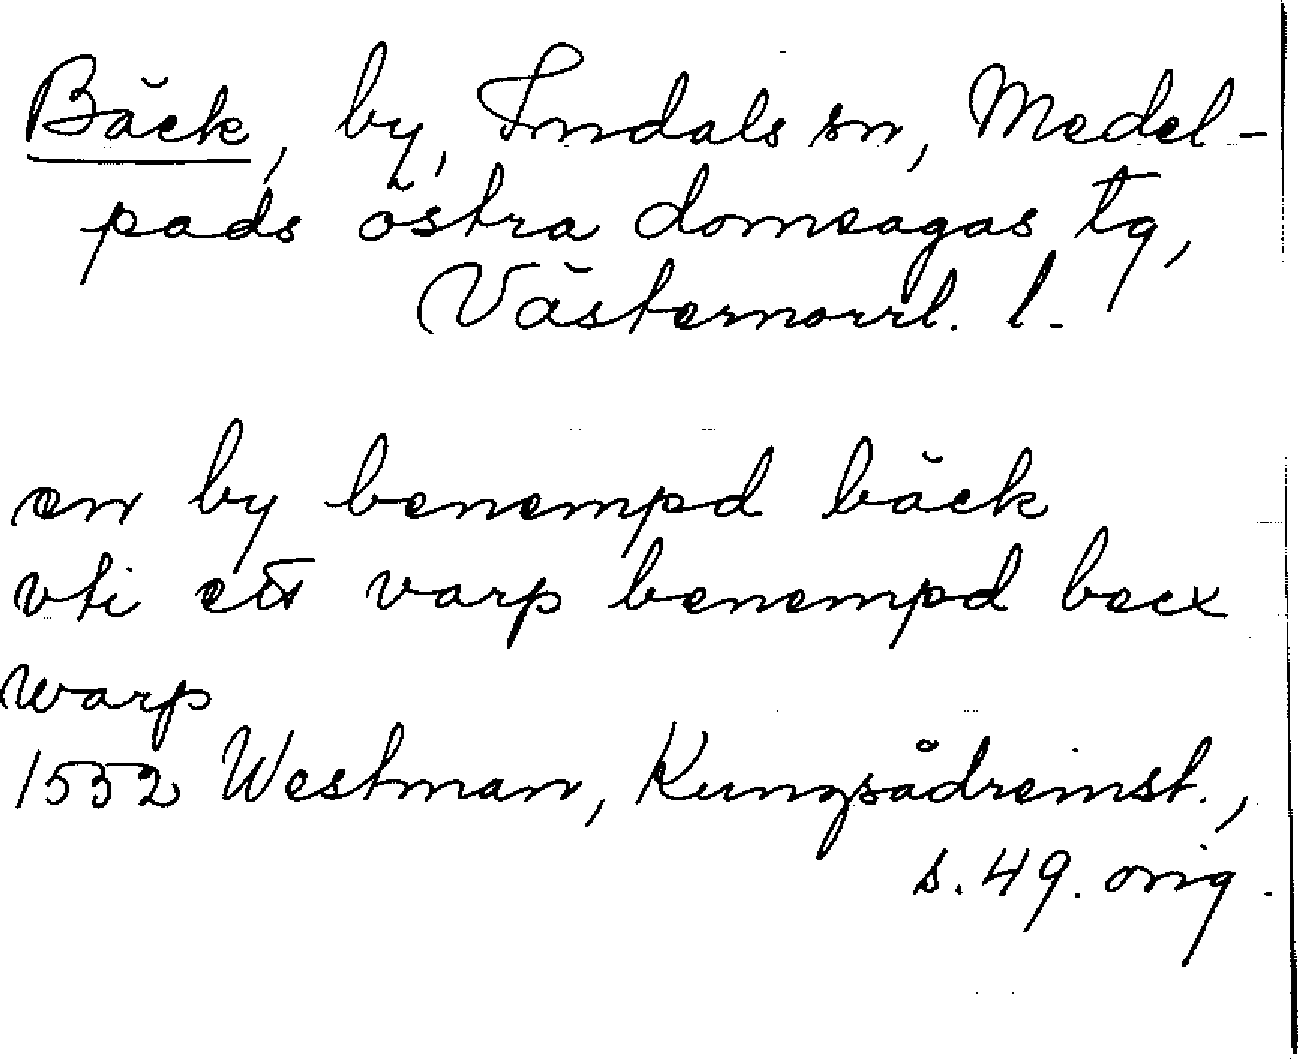 Bäck, by, Indals sn, Medel-
pads östra domsagas tg,
Västernorrl. l.
en by benempd bäck
vti ett varp benempd becx
warp
1552 Westman, Kungsådreinst.,
s. 49. orig.